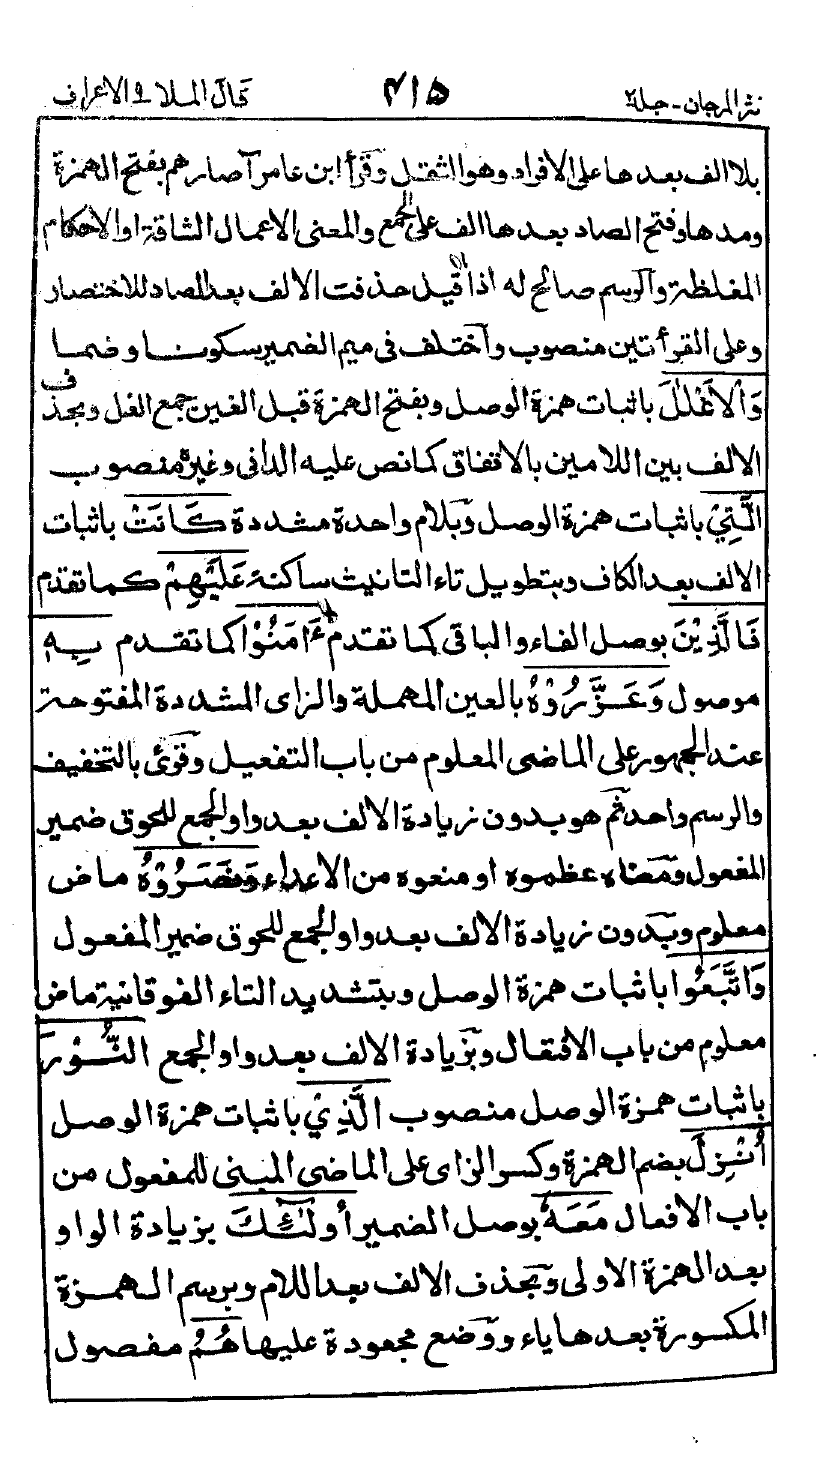 نثر المرجان - جلد٢ ٤١٥ قال الملا و الاعراف
بلا الف بعدها على الافراد وهو الثقل وقرأ ابن عامر آصارهم بفتح الهمزة
ومدها وفتح الصاد بعدها الف على الجمع والمعنى الاعمال الشاقة او الاحكام
المغلظة والرسم صالح له اذا قيل حذفت الالف بعد الصاد للاختصار
وعلى القرأتين منصوب واختلف فى ميم الضمير سكونا وضما
وَالْاَغْلٰلَ باثبات همزة الوصل وبفتح الهمزة قبل الغين جمع الغل وبحذف
الالف بين اللامين بالاتفاق كما نص عليه الدانى وغيره منصوب
الَّتِيْ باثبات همزة الوصل وبلام واحدة مشددة كَانَتْ باثبات
الالف بعد الكاف وبتطويل تاء التانيث ساكنة عَلَيْهِمْ كما تقدم
فَالَّذِيْنَ بوصل الفاء والباقى كما تقدم ءَامَنُوْا كما تقدم بِهٖ
موصول وَعَزَّرُوْهُ بالعين المهملة والزاى المشددة المفتوحة
عند الجمهور على الماضى المعلوم من باب التفعيل وقرئ بالتخفيف
والرسم واحد ثم هو بدون زيادة الالف بعد واو الجمع للحوق ضمير
المفعول ومعناه عظموه او منعوه من الاعداء وَنَصَرُوْهُ ماض
معلوم وبدون زيادة الالف بعد واو الجمع للحوق ضمير المفعول
وَاتَّبَعُوا باثبات همزة الوصل وبتشديد التاء الفوقانية ماض
معلوم من باب الافتعال وبزيادة الالف بعد واو الجمع النُّوْرَ
باثبات همزة الوصل منصوب الَّذِيْ باثبات همزة الوصل
اُنْزِلَ بضم الهمزة وكسر الزاى على الماضى المبنى للمفعول من
باب الافعال مَعَهٗ بوصل الضمير أُولٰٓئِكَ بزيادة الواو
بعد الهمزة الاولى وبحذف الالف بعد اللام وبرسم الهمزة
المكسورة بعدها ياء ووضع مجعودة عليها هُمُ مفصول